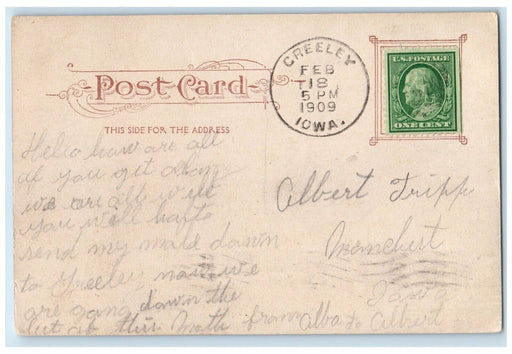 Post Card
THIS SIDE FOR THE ADDRESS
GREELEY
FEB
18
5 PM
1909
IOWA.
U.S. POSTAGE
ONE CENT
Hello how are all
of you get along
we are all well
you will hafto
send my mald dawn
to Greeley naw we
are gang dawn the
last of this Math from Alba to Albert
Albert Tripp
Manchest
Iowa